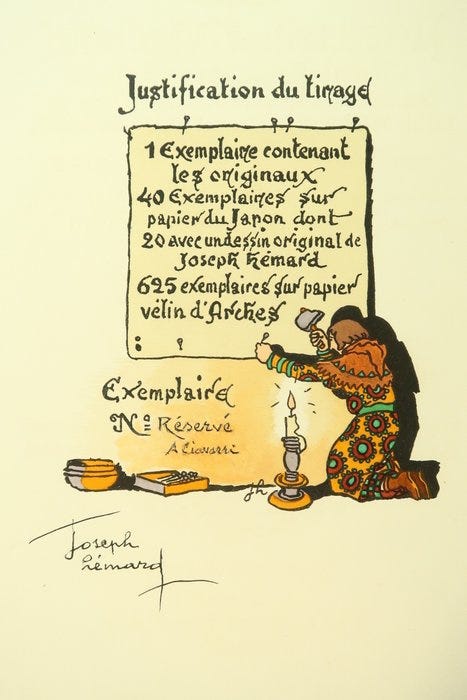 Justification du tirage
1 Exemplaire contenant
les originaux
40 Exemplaires sur
papier du Japon dont
20 avec un dessin original de
Joseph Hémard
625 exemplaires sur papier
vélin d'Arches
Exemplaire
No Réservé
A Ciavarri
jh
Joseph
Hémard